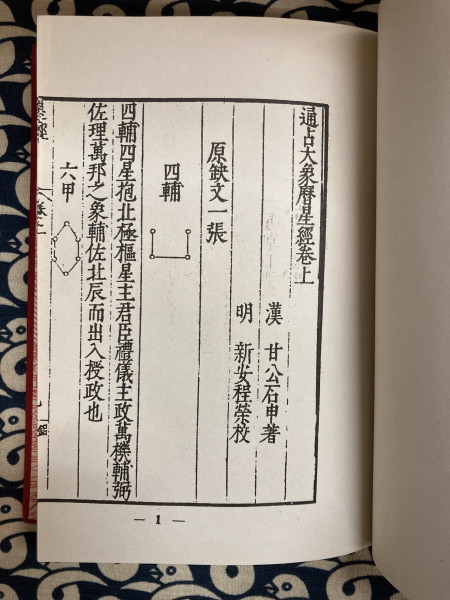 通占大象曆星經卷上
漢　甘公石申著
明　新安程榮校
原缺文一張
四輔
四輔四星抱北極樞星主君臣禮儀主政萬機輔弼
佐理萬邦之象輔佐北辰而出入授政也
六甲
星經
卷上
— 1 —